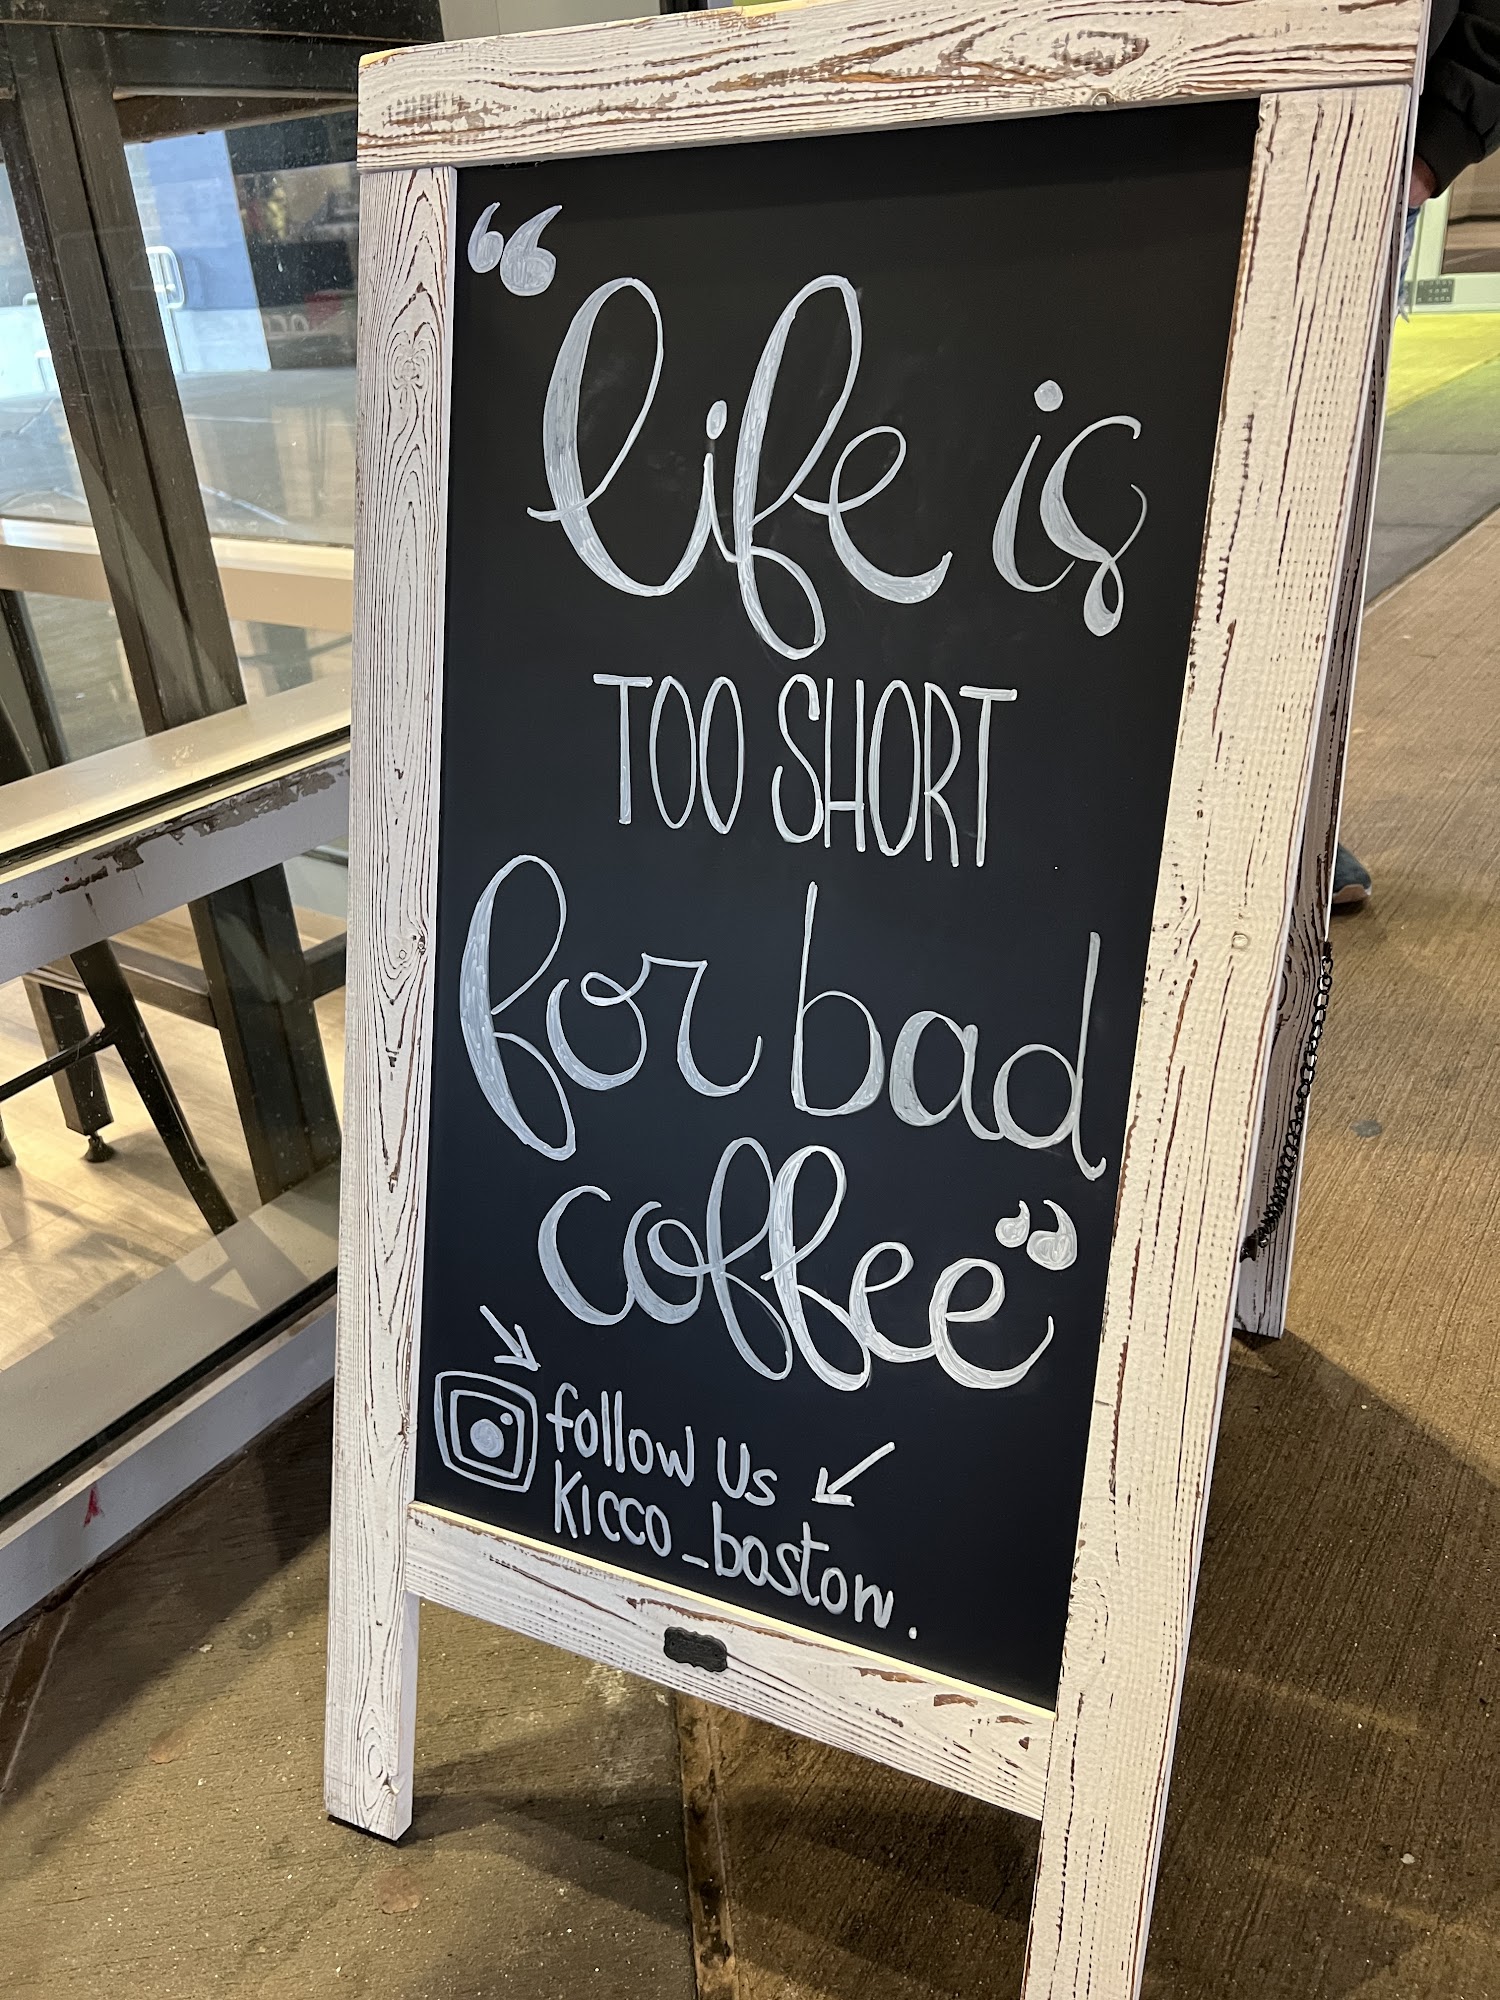 “life is
TOO SHORT
for bad
coffee”
follow Us
Kicco_boston.